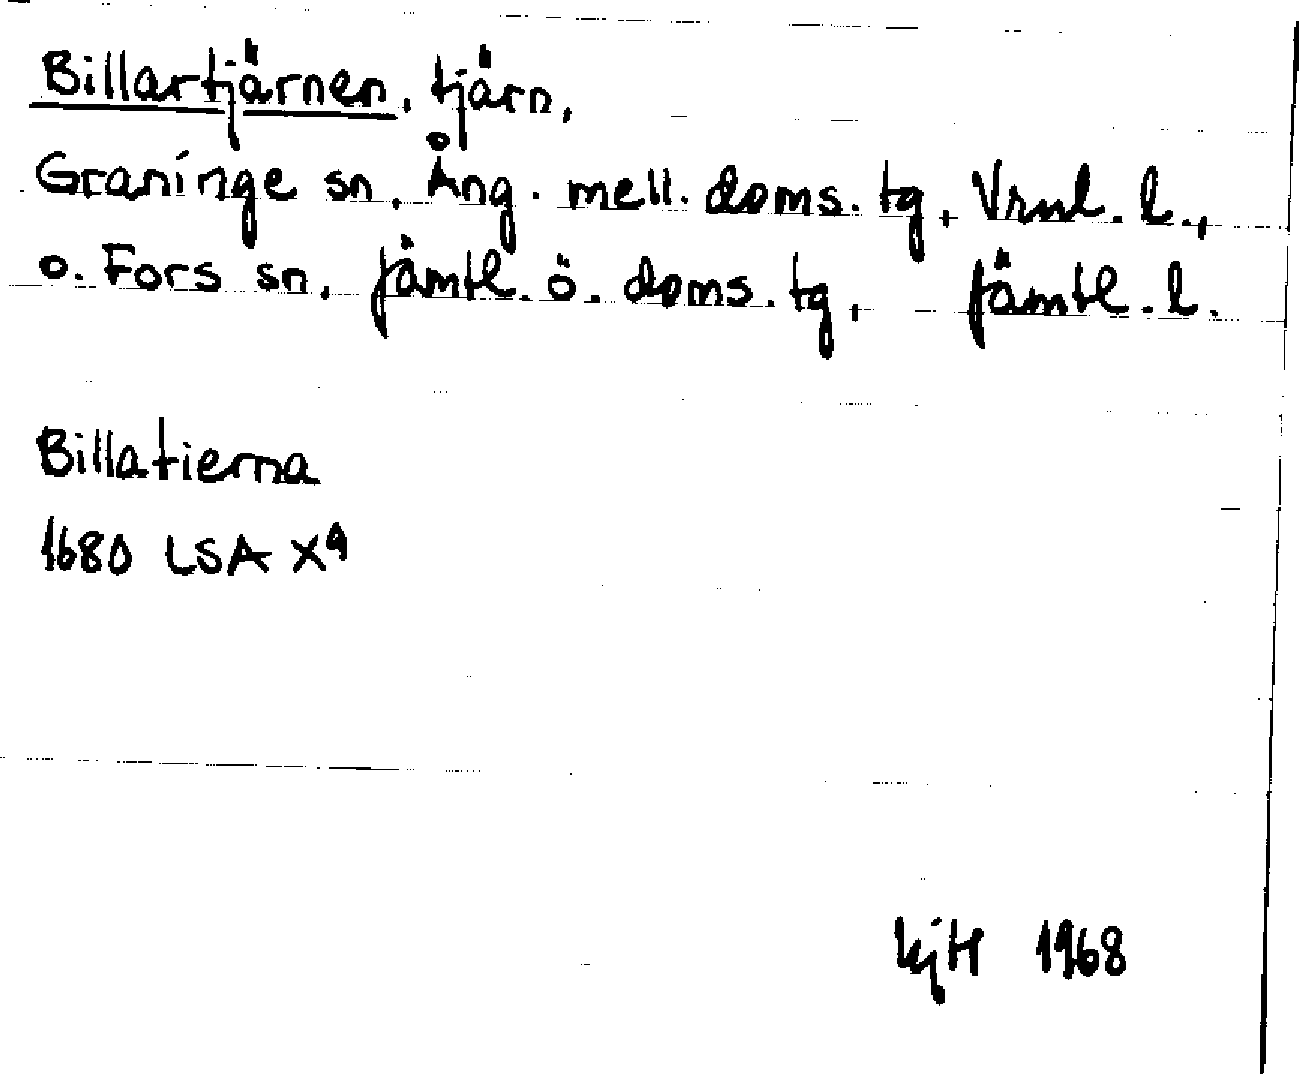 Billartjärnen, tjärn,
Graninge sn, Ång. mell. doms. tg, Vrnl. l.,
o. Fors sn, Jämtl. ö. doms. tg, Jämtl. l.
Billatierna
1680 LSA X⁹
KjH 1968